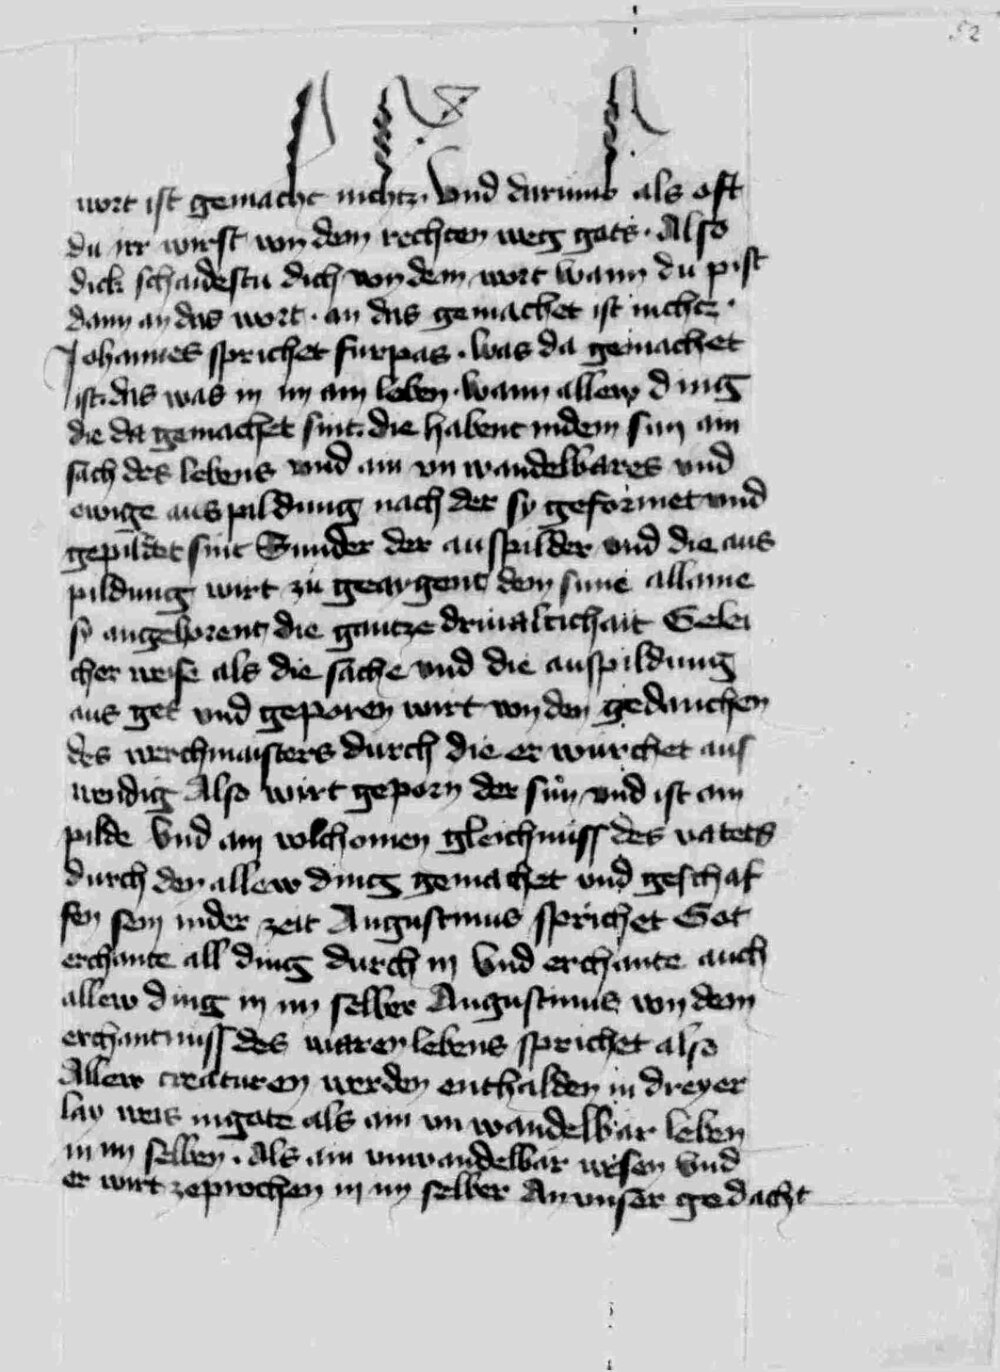 52
wort ist gemacht nichtz. Vnd darumb als oft
du irr wirst von dem rechten weg gots. Also
dick schaidestu dich von dem wort wann du pist
dann an das wort. an das gemachet ist nichtz.
Johannes sprichet furpas. was da gemachet
ist. das was in im ain leben. wann allew ding
die da gemachet sint. die habent in dem sun ain
sach des lebens vnd ain vn wandelbares vnd
ewige aus pildung nach der sy geformet vnd
gepildet sint Sunder der auspilder vnd die aus
pildung wirt zu geaygent dem sune allaine
sy angehorent die gantze driualtichait Gelei
cher weise als die sache vnd die auspildung
aus get vnd geporen wirt von den gedanchen
des werchmaisters durch die er würchet aus
wendig Also wirt geporn der sun vnd ist ain
pilde Vnd ain volchomen gleichnuss des vaters
durch den allew ding gemachet vnd geschaf
fen sein in der zeit Augustinus sprichet Got
erchante all ding durch in Vnd erchante auch
allew ding in im selber Augustinus von dem
erchantnuss des waren lebens sprichet also
Allew creaturen werden enthalden in dreyer
lay weis in gote als ain vn wandelbar leben
in im selben. Als ain vnwandelbar wesen Vnd
er wirt zeprochen in im selber An vnser gedacht